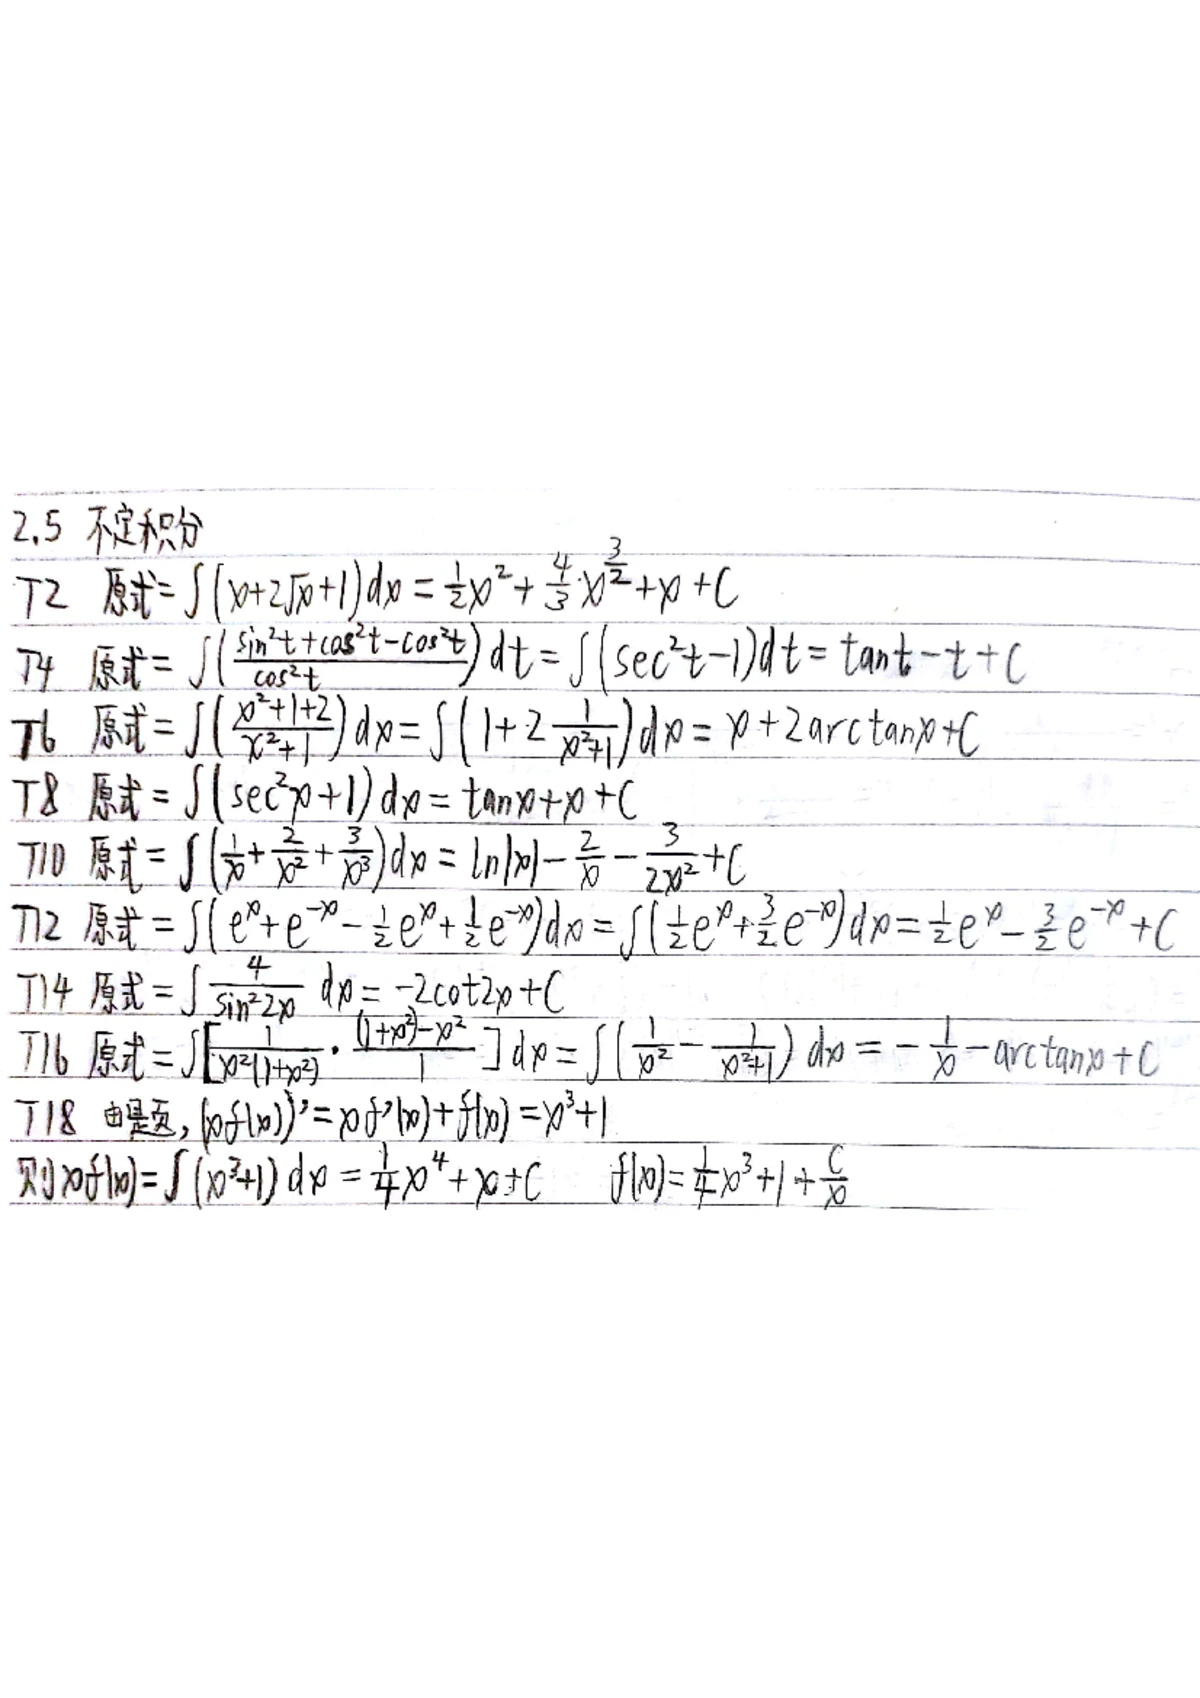 2.5 不定积分
T2 原式=∫(x+2√x+1)dx=½x²+4/3·x^(3/2)+x+C
T4 原式=∫((sin²t+cos²t-cos²t)/cos²t)dt=∫(sec²t-1)dt=tant-t+C
T6 原式=∫((x²+1+2)/(x²+1))dx=∫(1+2 1/(x²+1))dx=x+2arctanx+C
T8 原式=∫(sec²x+1)dx=tanx+x+C
T10 原式=∫(1/x+2/x²+3/x³)dx=ln|x|-2/x-3/(2x²)+C
T12 原式=∫(e^x+e^(-x)-½e^x+½e^(-x))dx=∫(½e^x+3/2e^(-x))dx=½e^x-3/2e^(-x)+C
T14 原式=∫4/(sin²2x) dx=-2cot2x+C
T16 原式=∫[1/(x²(1+x²))·((1+x²)-x²)/1]dx=∫(1/x²-1/(x²+1))dx=-1/x-arctanx+C
T18 由是页,(xf(x))'=xf'(x)+f(x)=x³+1
则xf(x)=∫(x³+1)dx=¼x⁴+x+C f(x)=¼x³+1+C/x